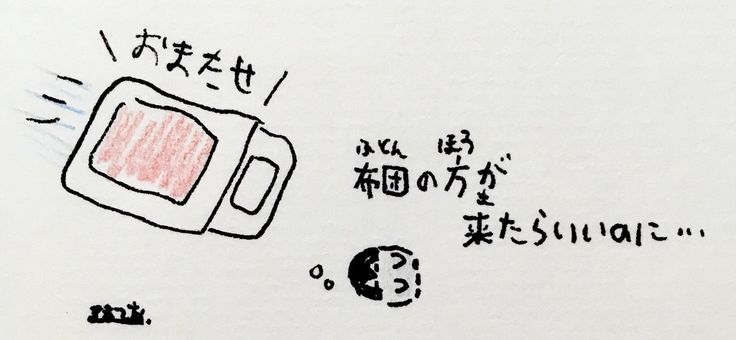 おまたせ
ふとん ほう
布団の方が
き
来たらいいのに…